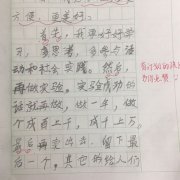 方便,更美好。
首先,我要好好学
习,多思考,多参与活
动和社会实践。然后,
再做实验。实验成功的
话就再做,做一年,做
个成百上千,成千上万。
最后卖出去,留下最
后一个,其它的给人们